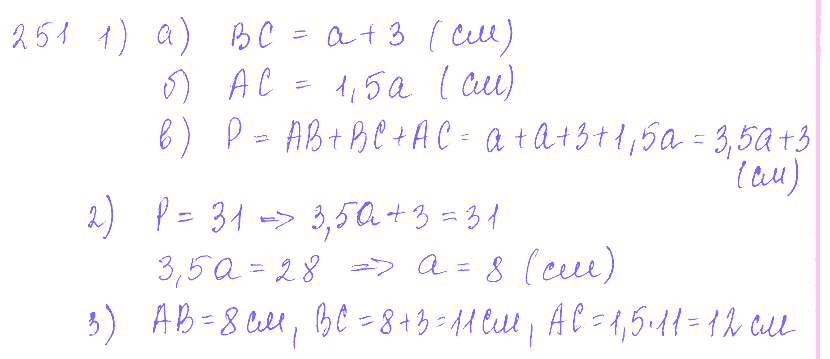 251 1) а) BC = a + 3 (см)
б) AC = 1,5a (см)
в) P = AB + BC + AC = a + a + 3 + 1,5a = 3,5a + 3
(см)
2) P = 31 => 3,5a + 3 = 31
3,5a = 28 => a = 8 (см)
3) AB = 8 см, BC = 8 + 3 = 11 см, AC = 1,5 · 11 = 12 см